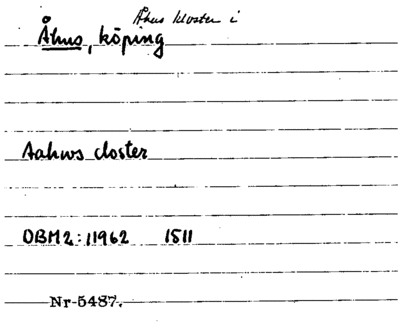 Åhus kloster i
Åhus, köping
Aahws closter
DBM2:11962 1511
Nr 5487.